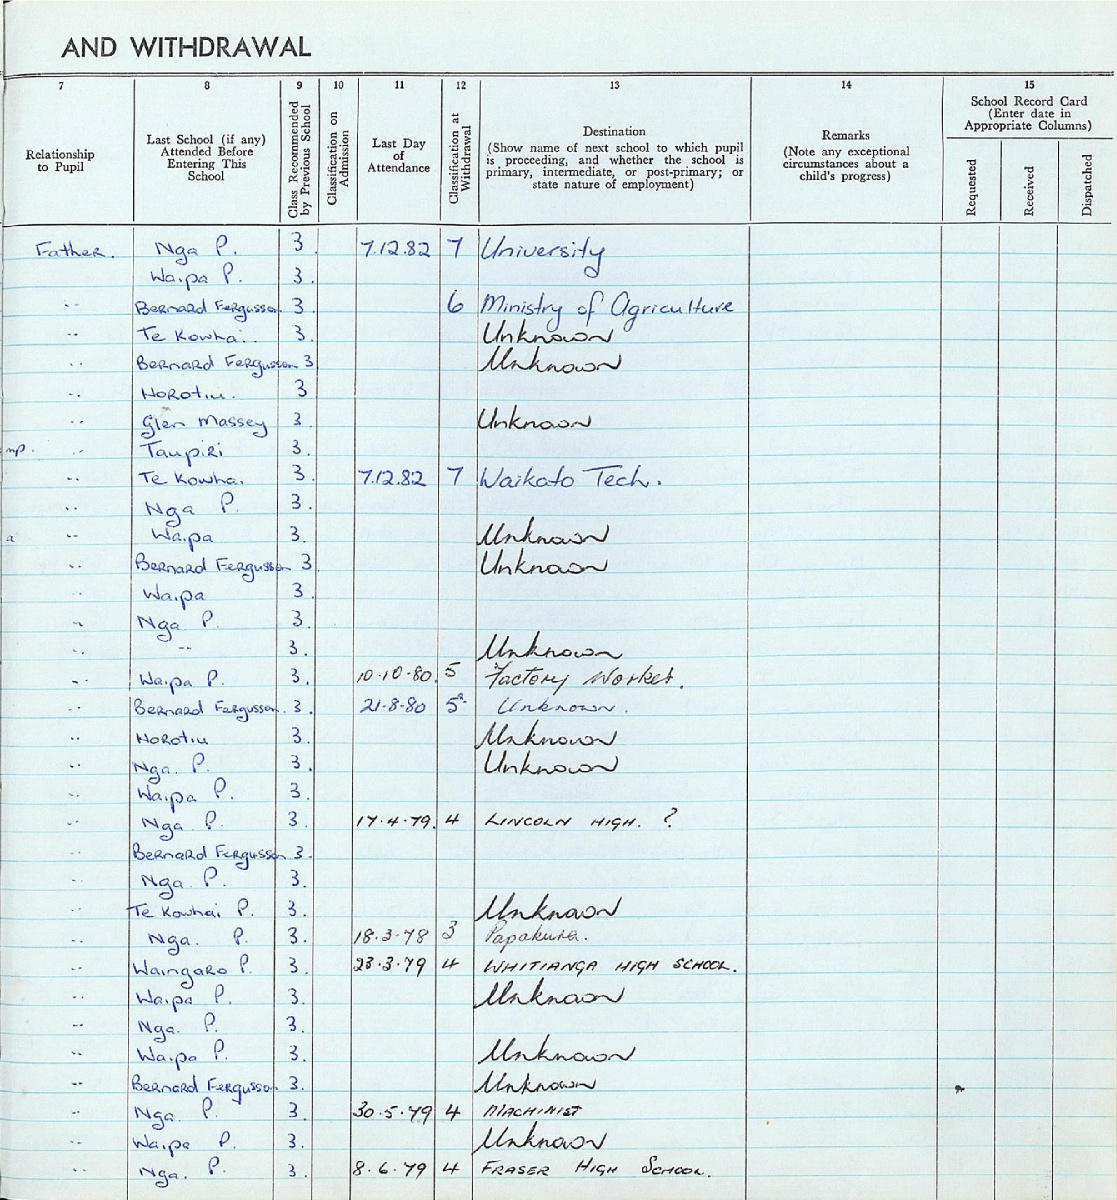 AND WITHDRAWAL
7 8 9 10 11 12 13 14 15
Relationship to Pupil
Last School (if any) Attended Before Entering This School
Class Recommended by Previous School
Classification on Admission
Last Day of Attendance
Classification at Withdrawal
Destination
(Show name of next school to which pupil is proceeding, and whether the school is primary, intermediate, or post-primary; or state nature of employment)
Remarks
(Note any exceptional circumstances about a child's progress)
School Record Card
(Enter date in Appropriate Columns)
Requested Received Dispatched
Father. Nga P. 3 7.12.82 7 University
Waipa P. 3.
" Bernard Fergusson 3 6 Ministry of Agriculture
" Te Kowhai. 3. Unknown
" Bernard Fergusson 3 Unknown
" Horotiu. 3
" Glen Massey 3. Unknown
" Taupiri 3.
" Te Kowhai 3. 7.12.82 7 Waikato Tech.
" Nga P. 3.
a " Waipa 3. Unknown
" Bernard Fergusson 3 Unknown
" Waipa 3
" Nga P. 3.
" " 3. Unknown
" Waipa P. 3. 10.10.80. 5 Factory Worker.
" Bernard Fergusson. 3. 21-8-80 5 Unknown.
" Horotiu 3. Unknown
" Nga. P. 3. Unknown
" Waipa P. 3.
" Nga P. 3. 17.4.79. 4 LINCOLN HIGH. ?
" Bernard Fergusson 3.
" Nga P. 3.
" Te Kowhai P. 3. Unknown
" Nga. P. 3. 18.3.78 3 Papakura.
" Waingaro P. 3. 23.3.79 4 WHITIANGA HIGH SCHOOL.
" Waipa P. 3. Unknown
" Nga. P. 3.
" Waipa P. 3. Unknown
" Bernard Fergusson 3. Unknown
" Nga P. 3. 30.5.79 4 MACHINIST
" Waipa P. 3. Unknown
" Nga. P. 3. 8.6.79 4 FRASER HIGH SCHOOL.